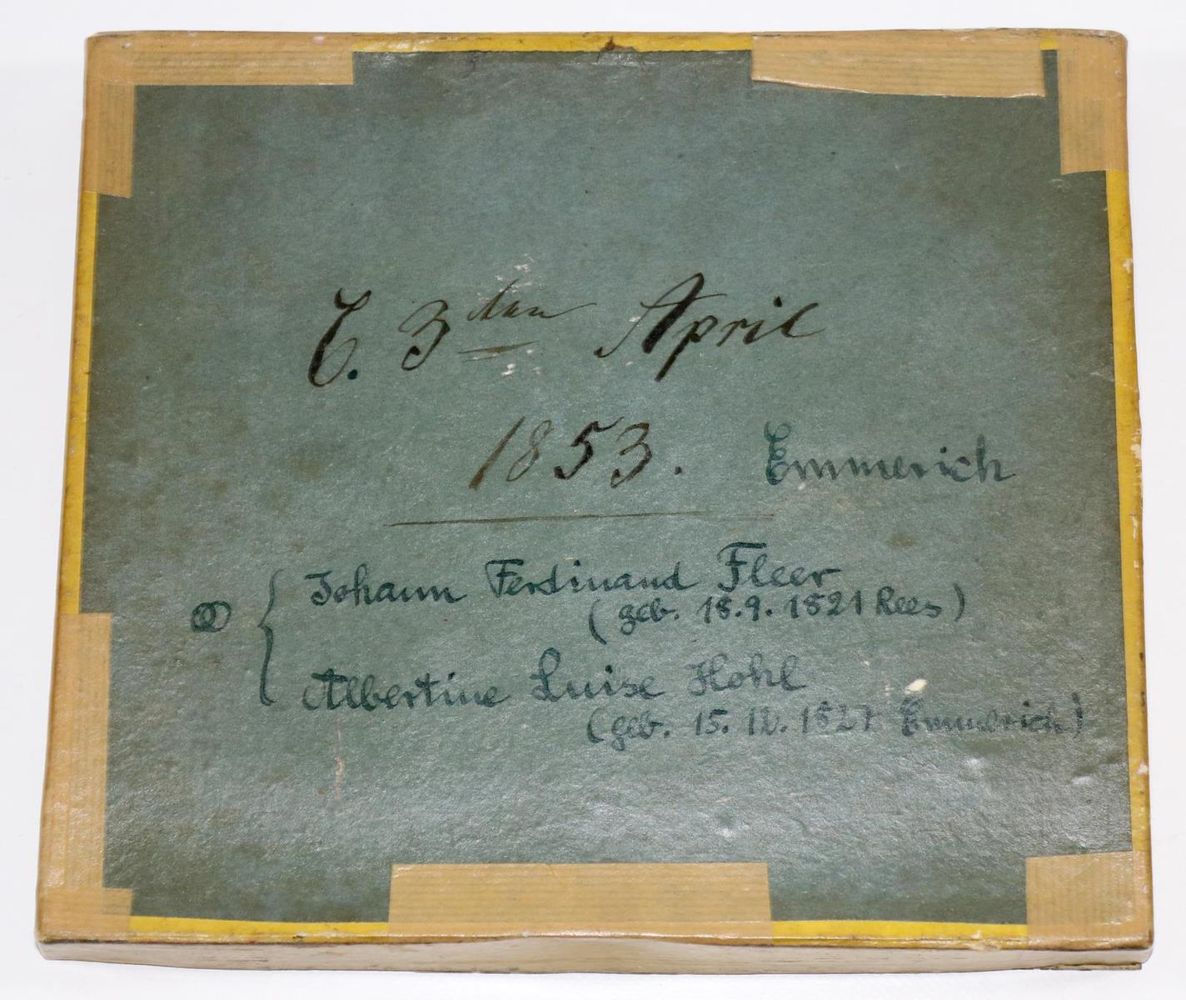 3ten April
1853. Emmerich
⚭ { Johann Ferdinand Fleer
(geb. 18.9.1821 Rees)
Albertine Luise Hohl
(geb. 15. 12. 1827 Emmerich)